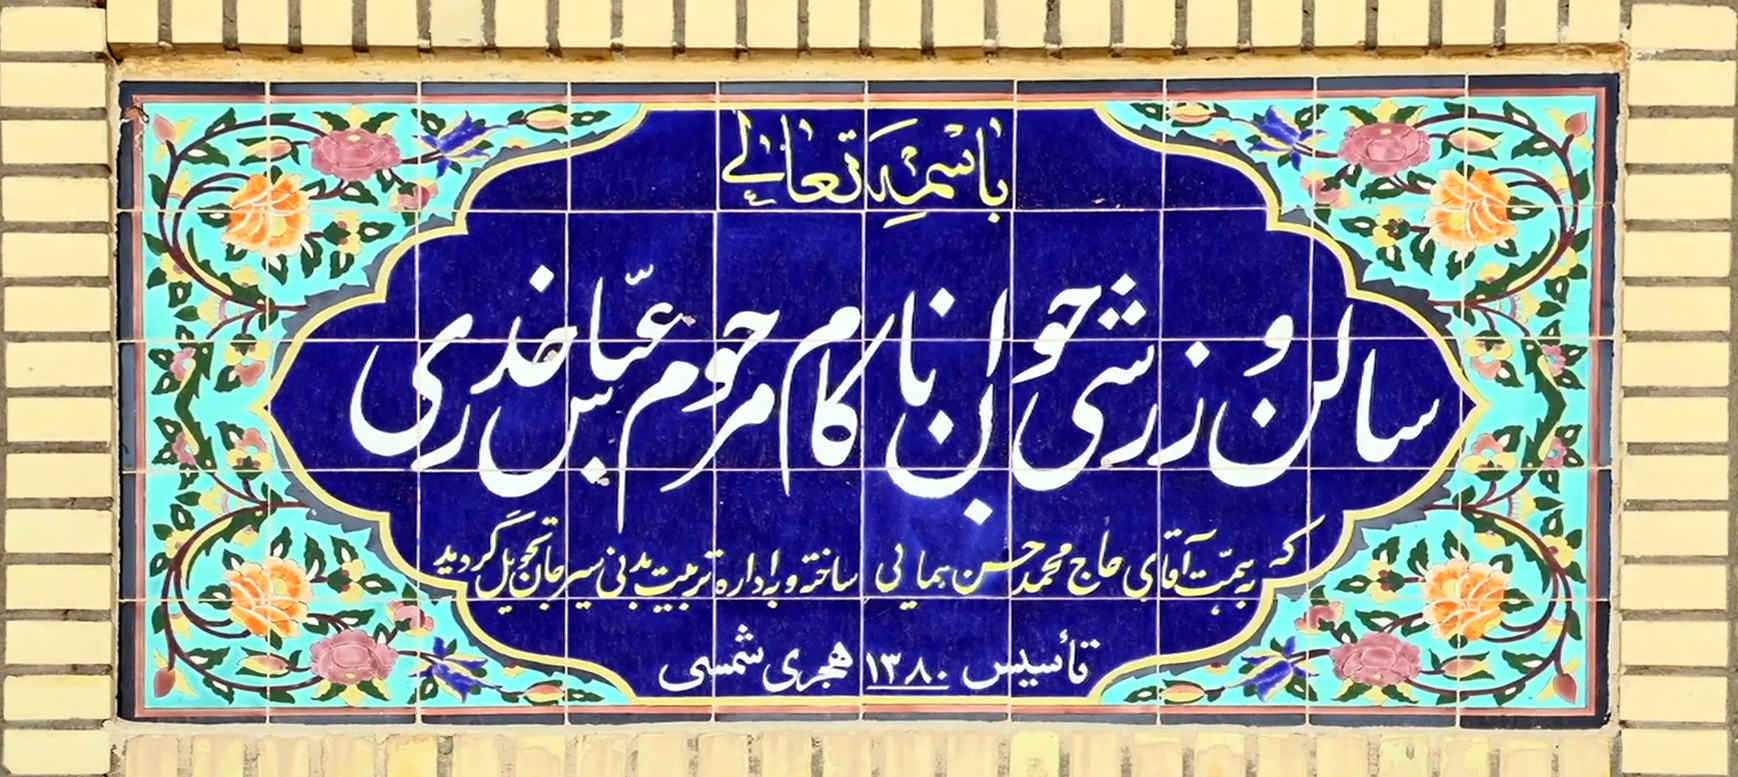 باسمه تعالی
سالن ورزشی جوان ناکام مرحوم عبّاس خدری
که به همّت آقای حاج محمد حسن همائی ساخته و به اداره تربیت بدنی سیرجان تحویل گردید
تأسیس ۱۳۸۰ هجری شمسی